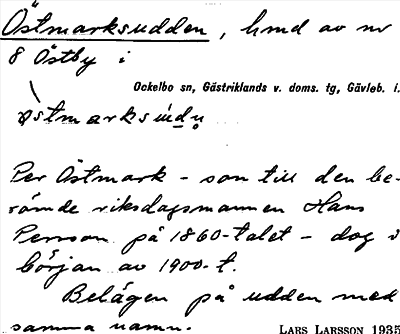 Östmarksudden, hmd av nr
8 Östby i
Ockelbo sn, Gästriklands v. doms. tg, Gävleb. l.
Per Östmark - son till den be-
römde riksdagsmannen Hans
Persson på 1860-talet - dog i
början av 1900-t.
Belägen på udden med
samma namn.
LARS LARSSON 1935